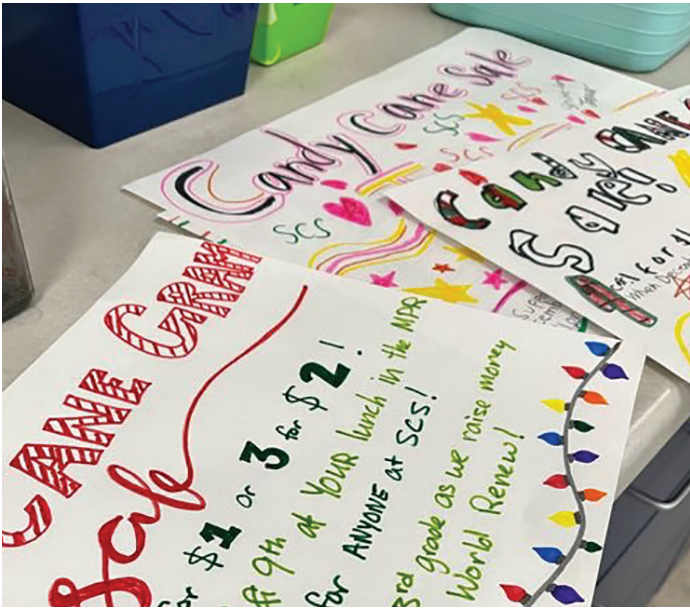 Candy Cane Sale
SCS
SCS
SCS
SCS
Candy CANE
Sale!
for $1
When
Supp
CANE GRAM
Sale
for $1 or 3 for $2!
9th at YOUR lunch in the MPR
for ANYONE at SCS!
3rd grade as we raise money
World Renew!